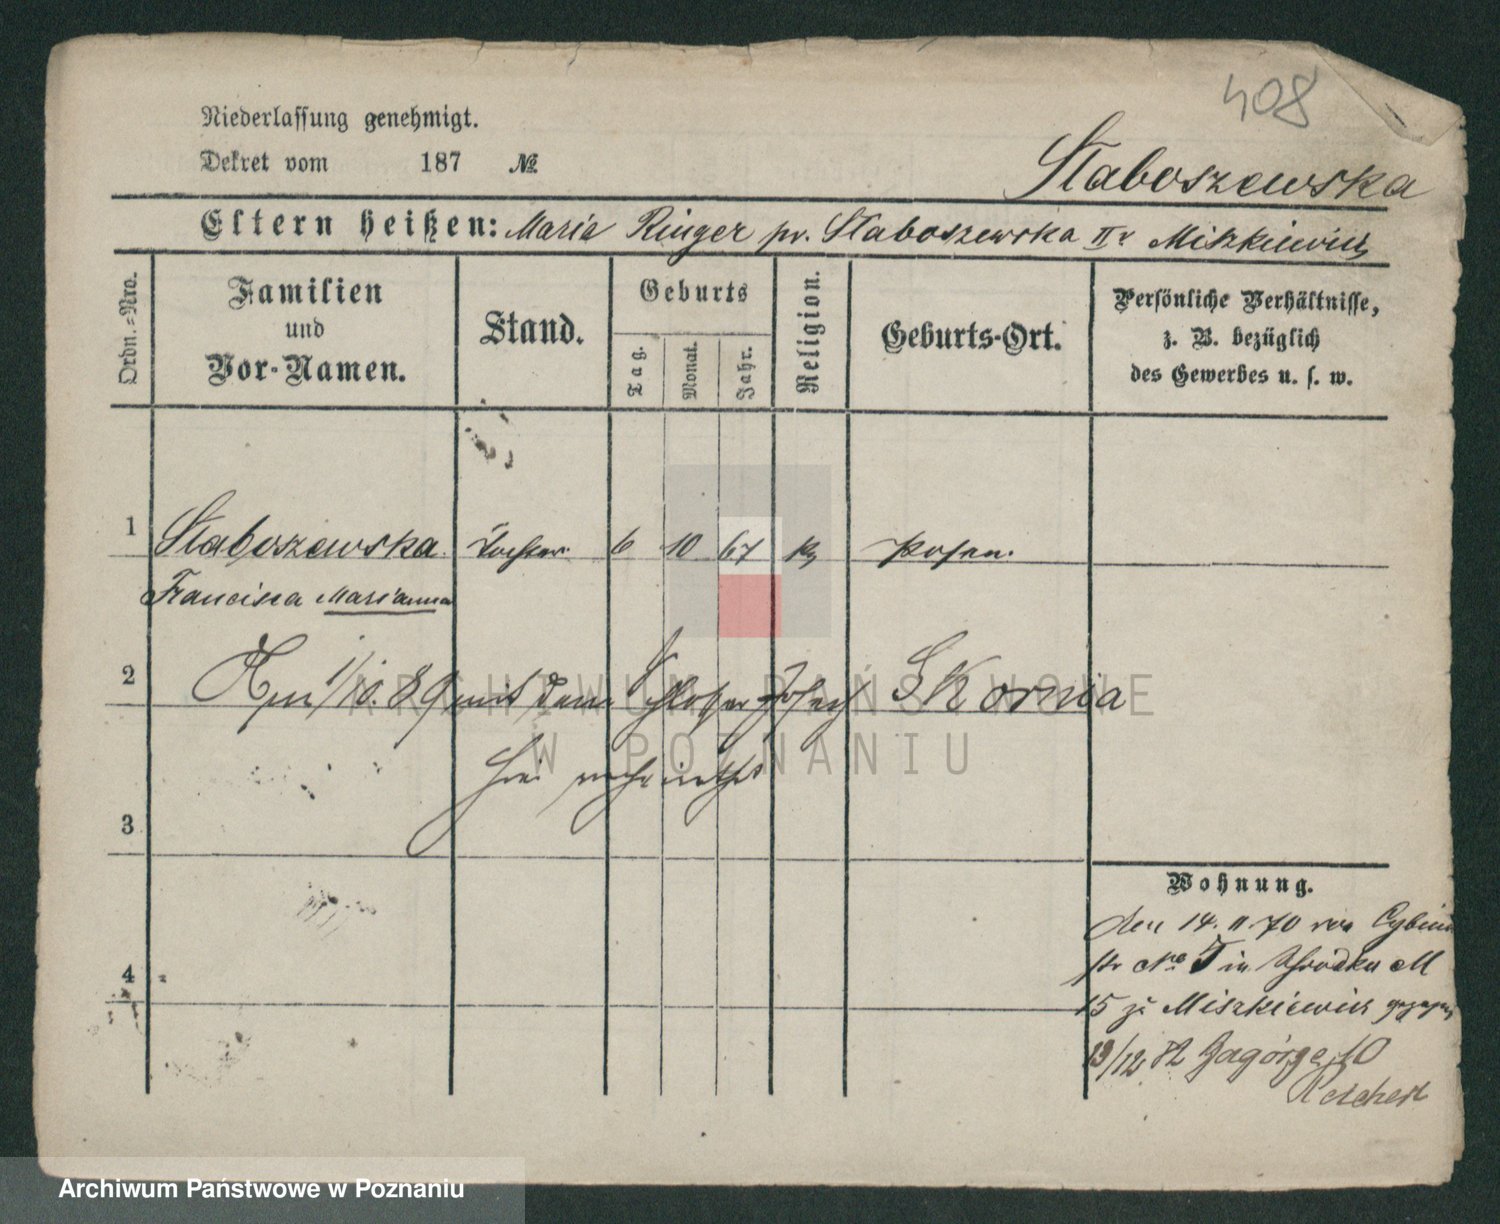 408
Niederlassung genehmigt.
Dekret vom 187 №
Staboszewska
Eltern heißen: Maria Ringer pr. Staboszewska II v Miszkiewicz
Ordn.=Nro.
Familien
und
Vor-Namen.
Stand.
Geburts
Tag.
Monat.
Jahr.
Religion.
Geburts-Ort.
Persönliche Verhältnisse,
z. B. bezüglich
des Gewerbes u. s. w.
1 Staboszewska Tochter 6 10 67 k Posen.
Francisca Marianna
2 Am 1/10.89 mit dem Schlosser Josef Skornia
hier verheirathet
3
4
Wohnung.
den 14. 11. 70 von Cybina
str No 5 in Schrodka M
15 zu Miszkiewicz gezogen
19/12 82 Zagórze 10
Reichert
ARCHIWUM PAŃSTWOWE
W POZNANIU
Archiwum Państwowe w Poznaniu